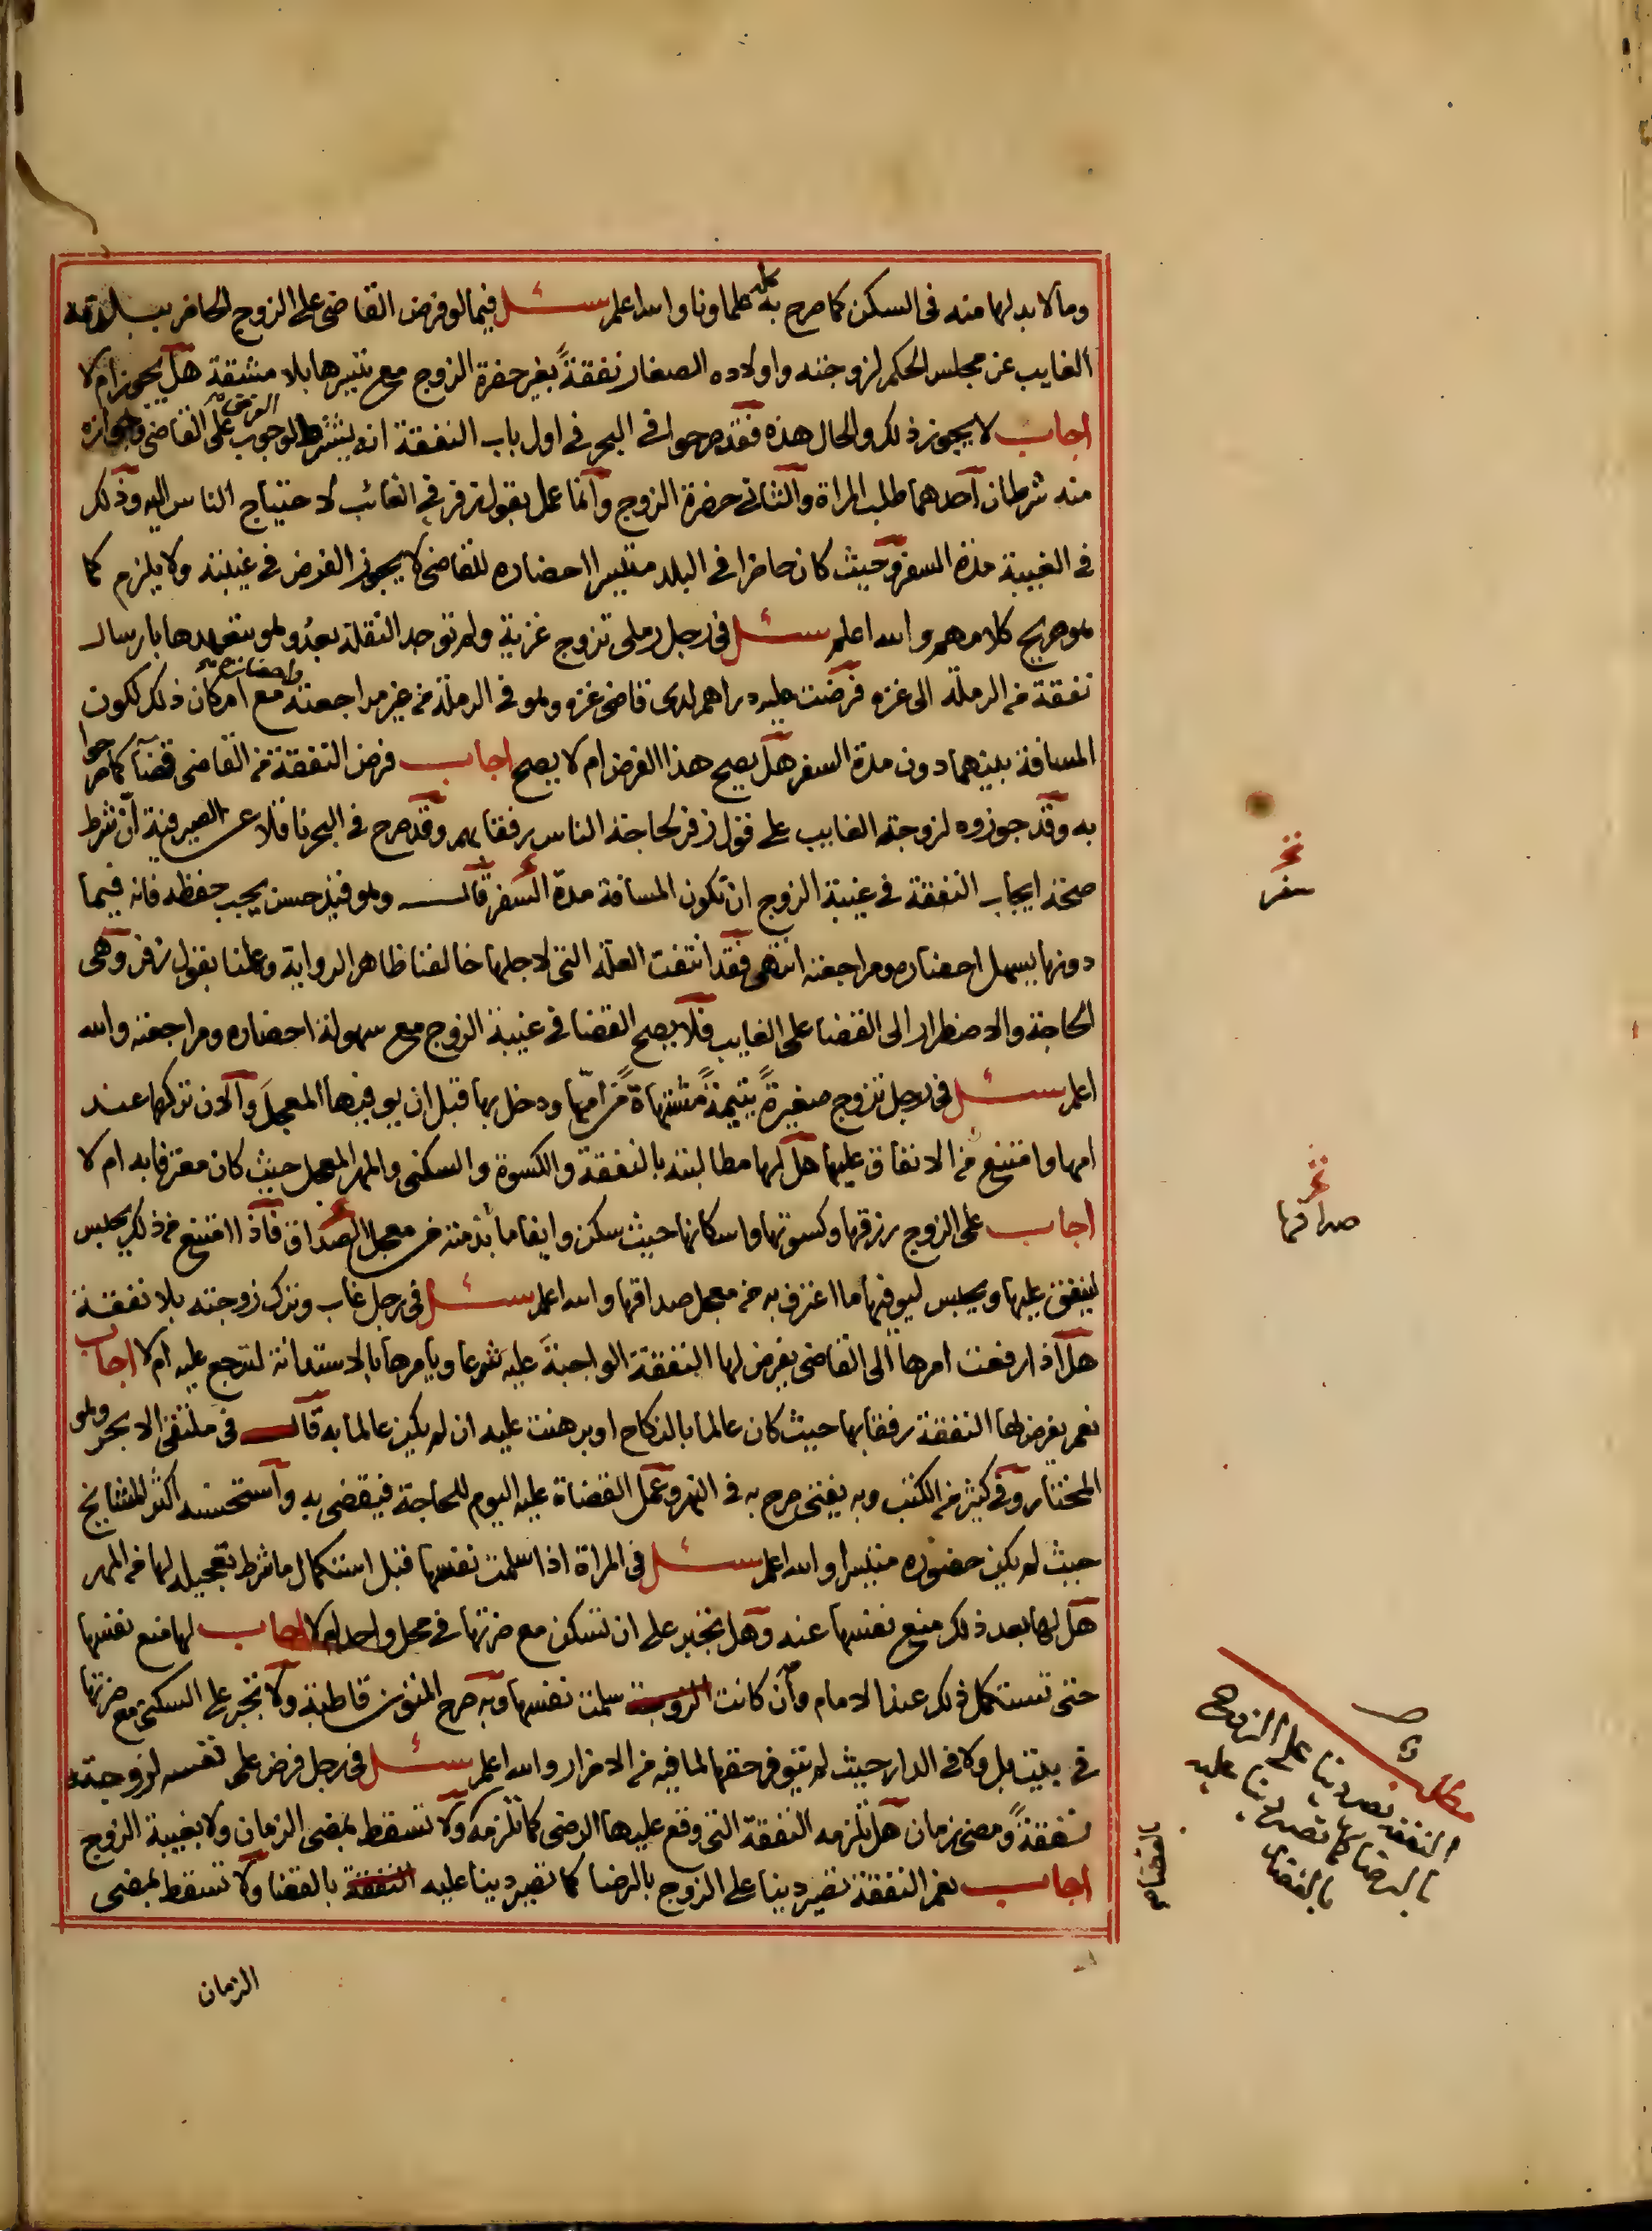 وما لا بد لها منه فى السكن كما صرح به كله علماونا والله اعلم سئل فيما لو فرض القاضى على الزوج الحاضر ببلدته
الغايب عن مجلس الحكم لزوجته واولاده الصغار نفقةً بغير حضرة الزوج مع تيسرها بلا مشقة هل يجوز ام لا
اجاب لا يجوز ذلك والحال هذه فقد صرحوا فى البحر فى اول باب النفقة انه يشترط لوجوب الفرض على القاضى وجوازه
منه شرطان احدهما طلب المراة والثانى حضرة الزوج وانما عمل بقول زفر فى الغائب لاحتياج الناس اليه وذلك
فى الغيبة مدة السفر وحيث كان حاضرا فى البلد متيسرا احضاره للقاضى لا يجوز الفرض فى غيبته ولا يلزم كما
هو صريح كلامهم والله اعلم سئل فى رجل رملى تزوج غزية ولم توجد النقلة بعد وهو يتعهدها بارسال
نفقة من الرملة الى غزه فرضت عليه دراهم لدى قاضى غزه وهو فى الرملة من غير مراجعته واحضاره مع امكان ذلك لكون
المسافة بينهما دون مدة السفر هل يصح هذا الفرض ام لا يصح اجاب فرض النفقة من القاضى قضآ كما صرحوا
به وقد جوزوه لزوجة الغايب على قول زفر لحاجة الناس رفقا بهم وقد صرح فى البحر ناقلا عن الصيرفية ان شرط
صحة ايجاب النفقة فى غيبة الزوج ان تكون المسافة مدة السفر قال وهو قيد حسن يجب حفظه فانه فيما
دونها يسهل احضاره ومراجعته انتهى فقد انتفت العلة التى لاجلها خالفنا ظاهر الرواية وعملنا بقول زفر وهى
الحاجة والاضطرار الى القضا على الغايب فلا يصح القضا فى غيبة الزوج مع سهولة احضاره ومراجعته والله
اعلم سئل فى رجل تزوج صغيرةً يتيمةً مشتهاةً من امها ودخل بها قبل ان يوفيها المعجل والان تركها عند
امها وامتنع من الانفاق عليها هل لها مطالبته بالنفقة والكسوة والسكنى والمهر المعجل حيث كان معترفا به ام لا
اجاب على الزوج رزقها وكسوتها واسكانها حيث سكن وايفا ما بذمته من معجل الصداق فاذا امتنع من ذلك يحبس
لينفق عليها ويحبس ليوفيها ما اعترف به من معجل صداقها والله اعلم سئل فى رجل غاب وترك زوجته بلا نفقة
هل اذا رفعت امرها الى القاضى يفرض لها النفقة الواجبة عليه شرعا ويامرها بالاستدانة لترجع عليه ام لا اجاب
نعم يفرض لها النفقة رفقا بها حيث كان عالما بالنكاح او برهنت عليه ان لم يكن عالما به قال فى ملتقى الابحر وهو
المختار وفى كثير من الكتب وبه يفتى صرح به فى النهر وعمل القضاة عليه اليوم للحاجة فيقضى به واستحسنه اكثر المشايخ
حيث لم يكن حضوره متيسرا والله اعلم سئل فى المراة اذا سلمت نفسها قبل استكمال ما شرط تعجيله لها من المهر
هل لها بعد ذلك منع نفسها عنه وهل تجبر على ان تسكن مع ضرتها فى محل واحد ام لا اجاب لها منع نفسها
حتى تستكمل ذلك عند الامام وان كانت الزوجة سلمت نفسها وبه صرح المتون قاطبة ولا تجبر على السكنى مع ضرتها
فى بيت بل ولا فى الدار حيث لم يتوفر حقها لما فيه من الاضرار والله اعلم سئل فى رجل فرض على نفسه لزوجته
نفقةً ومضى زمان هل تلزمه النفقة التى وقع عليها الرضى كما تلزمه ولا تسقط بمضى الزمان ولا بغيبة الزوج
اجاب نعم النفقة تصير دينا على الزوج بالرضا كما تصير دينا عليه النفقة بالقضا ولا تسقط بمضى
الزمان
سفر
صداقها
مطلب
النفقة تصير دينا على الزوج
بالرضا كما تصير دينا عليه
بالقضاء
بالقضا